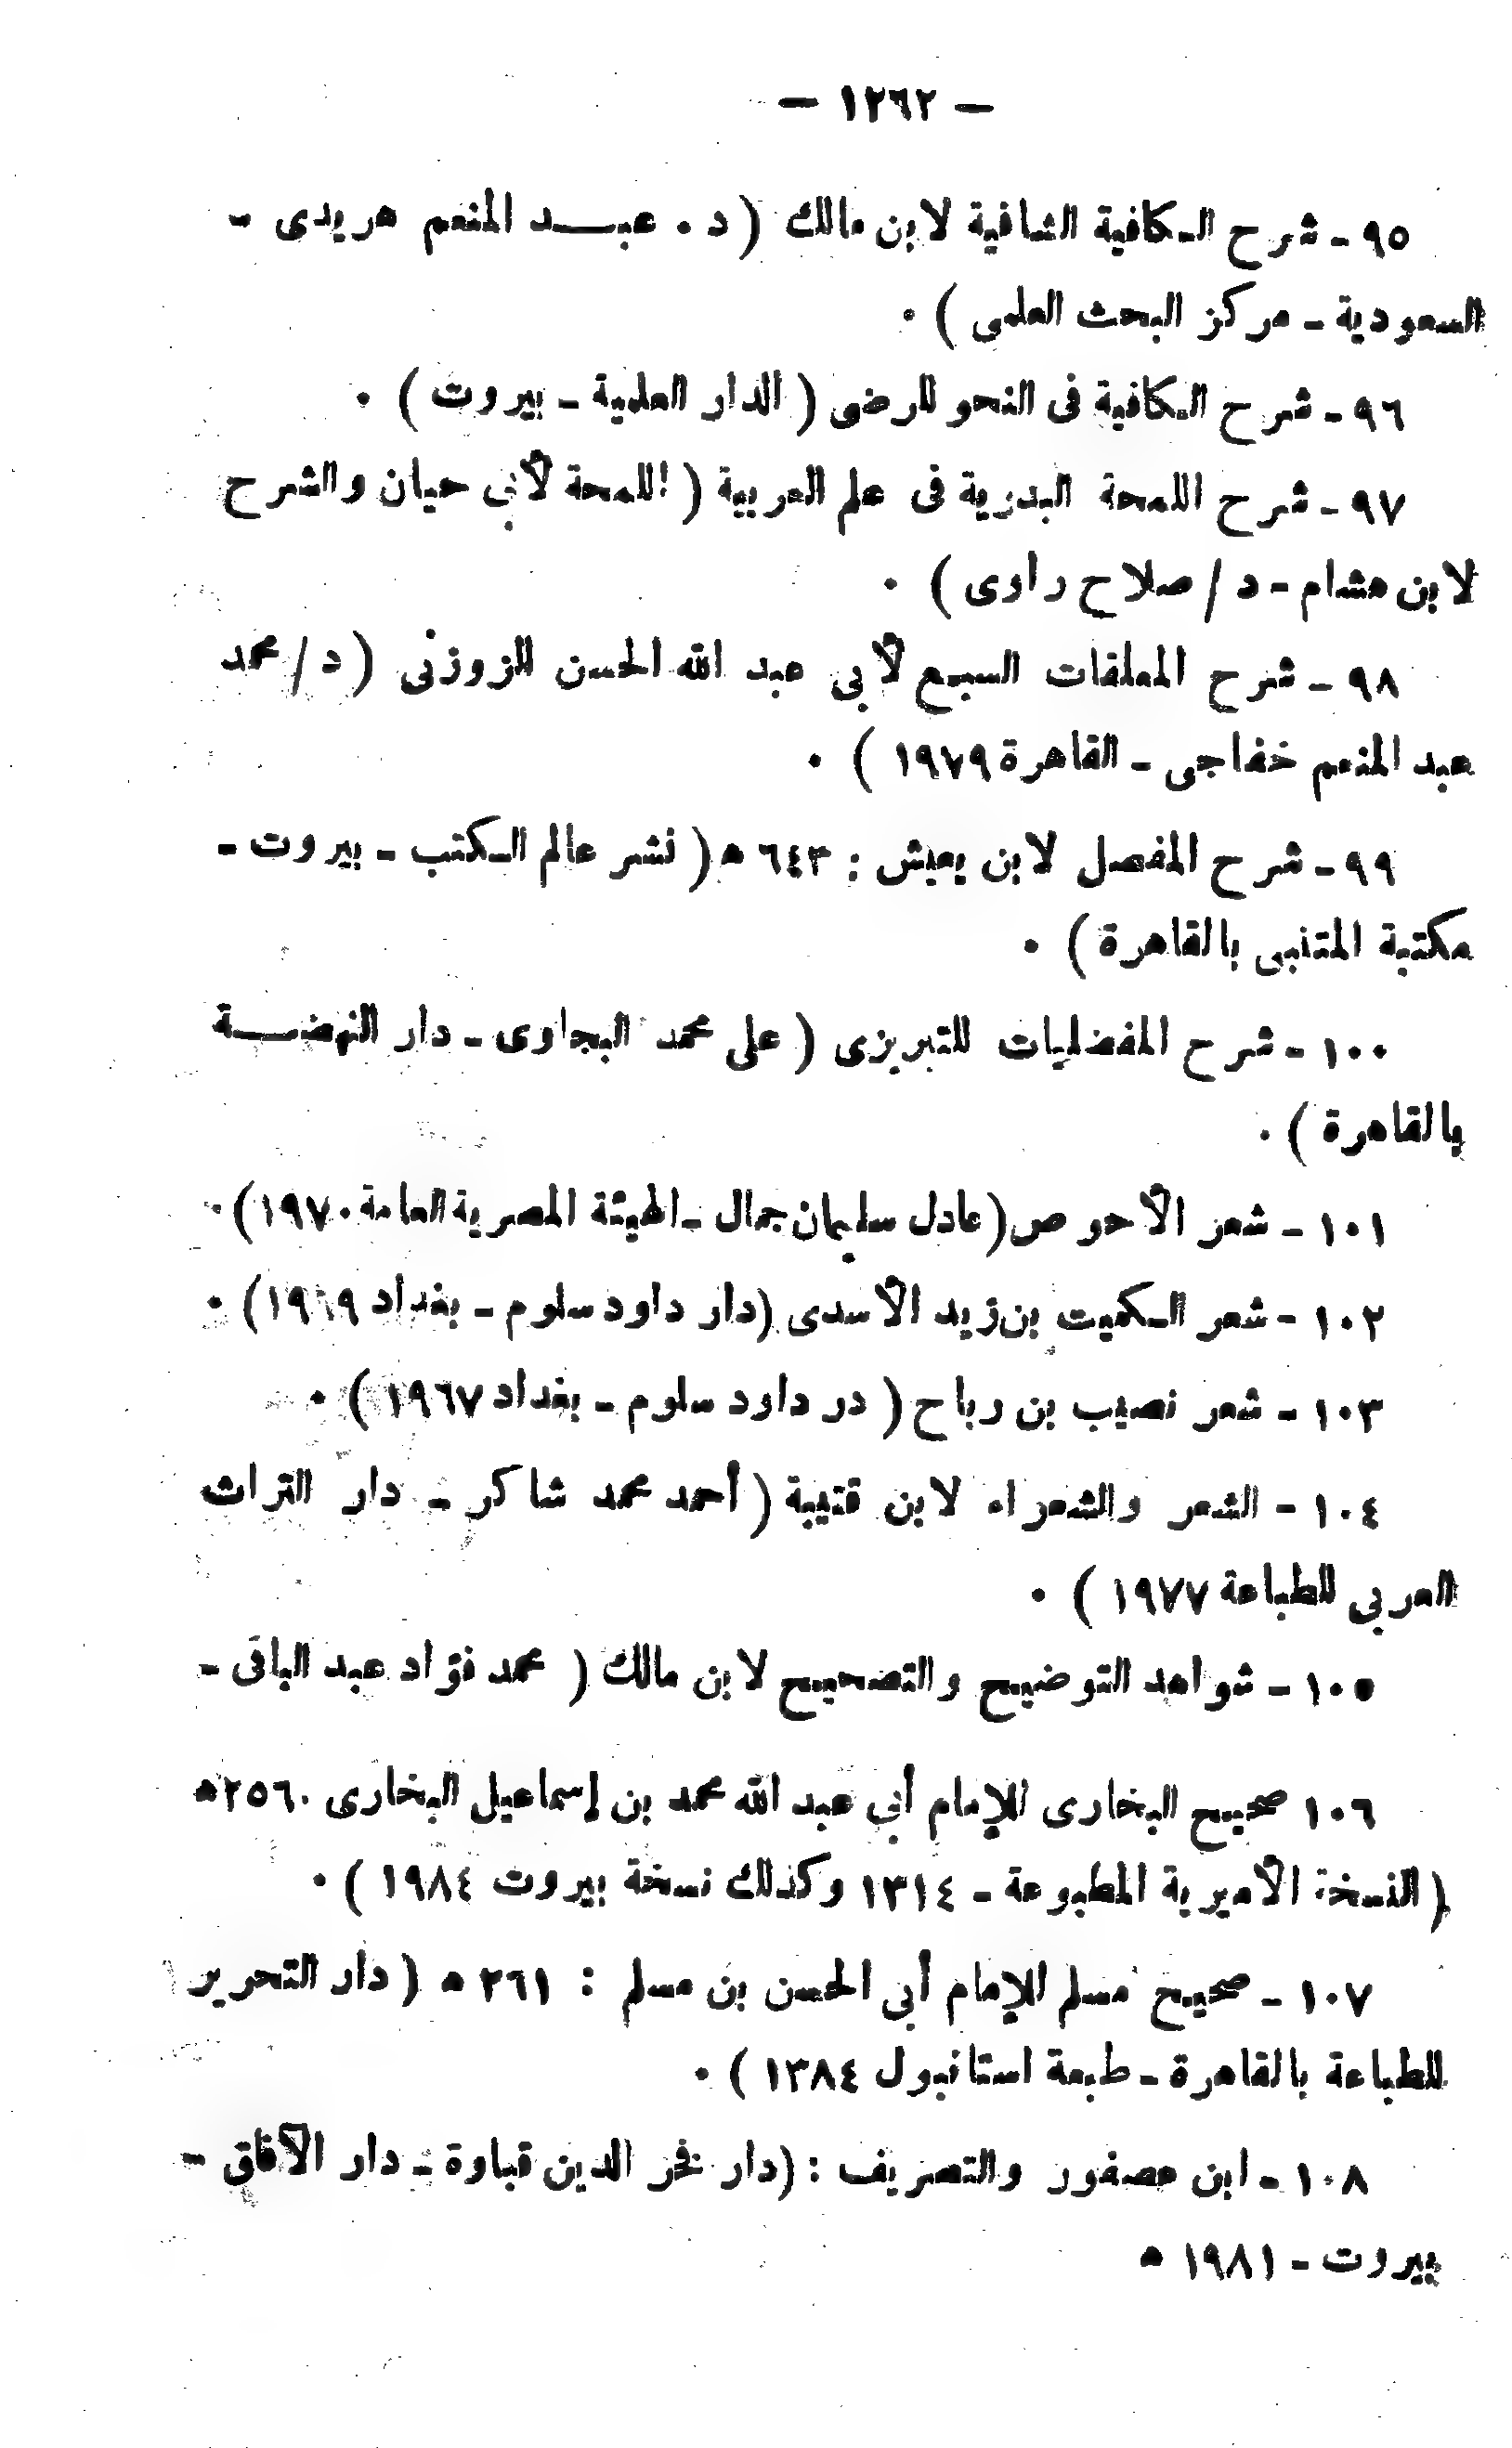 — ١٢٦٢ —
٩٥ - شرح الكافية الشافية لابن مالك ( د . عبد المنعم هريدى -
السعودية - مركز البحث العلمى ) .
٩٦ - شرح الكافية فى النحو للرضى ( الدار العلمية - بيروت ) .
٩٧ - شرح اللمحة البدرية فى علم العربية ( اللمحة لأبى حيان والشرح
لابن هشام - د / صلاح راوى ) .
٩٨ - شرح المعلقات السبع لأبى عبد الله الحسن للزوزنى ( د / محمد
عبد المنعم خفاجى - القاهرة ١٩٧٩ ) .
٩٩ - شرح المفصل لابن يعيش : ٦٤٣ ه ( نشر عالم الكتب - بيروت -
مكتبة المتنبى بالقاهرة ) .
١٠٠ - شرح المفضليات للتبريزى ( على محمد البجاوى - دار النهضة
بالقاهرة ) .
١٠١ - شعر الأحوص ( عادل سليمان جمال - الهيئة المصرية العامة ١٩٧٠ ) .
١٠٢ - شعر الكميت بن زيد الأسدى ( دار داود سلوم - بغداد ) .
١٠٣ - شعر نصيب بن رباح ( در داود سلوم - بغداد ١٩٦٧ ) .
١٠٤ - الشعر والشعراء لابن قتيبة ( أحمد محمد شاكر - دار التراث
العربى للطباعة ١٩٧٧ ) .
١٠٥ - شواهد التوضيح والتصحيح لابن مالك ( محمد فؤاد عبد الباقى -
١٠٦ صحيح البخارى للإمام أبى عبد الله محمد بن إسماعيل البخارى ٢٥٦٠ ه
( النسخة الأميرية المطبوعة - ١٣١٤ وكذلك نسخة بيروت ١٩٨٤ ) .
١٠٧ - صحيح مسلم للإمام أبى الحسن بن مسلم : ٢٦١ ه ( دار التحرير
للطباعة بالقاهرة - طبعة استانبول ١٣٨٤ ) .
١٠٨ - ابن عصفور والتصريف : ( دار فخر الدين قباوة - دار الآفاق -
بيروت - ١٩٨١ ه